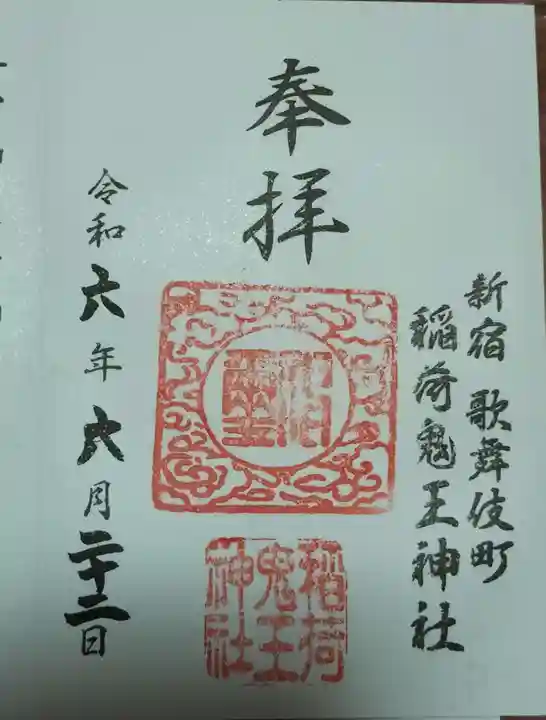 奉拝
新宿 歌舞伎町
稲荷鬼王神社
稲荷
鬼王
神社
令和六年六月二十二日